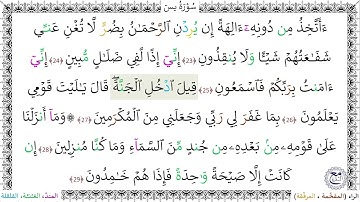 سُورَةُ يس
ءَأَتَّخِذُ مِن دُونِهِۦٓ ءَالِهَةً إِن يُرِدْنِ ٱلرَّحْمَـٰنُ بِضُرٍّ لَّا تُغْنِ عَنِّى
شَفَـٰعَتُهُمْ شَيْـًٔا وَلَا يُنقِذُونِ ﴿٢٣﴾ إِنِّىٓ إِذًا لَّفِى ضَلَـٰلٍ مُّبِينٍ ﴿٢٤﴾ إِنِّىٓ
ءَامَنتُ بِرَبِّكُمْ فَٱسْمَعُونِ ﴿٢٥﴾ قِيلَ ٱدْخُلِ ٱلْجَنَّةَ ۖ قَالَ يَـٰلَيْتَ قَوْمِى
يَعْلَمُونَ ﴿٢٦﴾ بِمَا غَفَرَ لِى رَبِّى وَجَعَلَنِى مِنَ ٱلْمُكْرَمِينَ ﴿٢٧﴾ ۞ وَمَآ أَنزَلْنَا
عَلَىٰ قَوْمِهِۦ مِنۢ بَعْدِهِۦ مِن جُندٍ مِّنَ ٱلسَّمَآءِ وَمَا كُنَّا مُنزِلِينَ ﴿٢٨﴾ إِن
كَانَتْ إِلَّا صَيْحَةً وَٰحِدَةً فَإِذَا هُمْ خَـٰمِدُونَ ﴿٢٩﴾